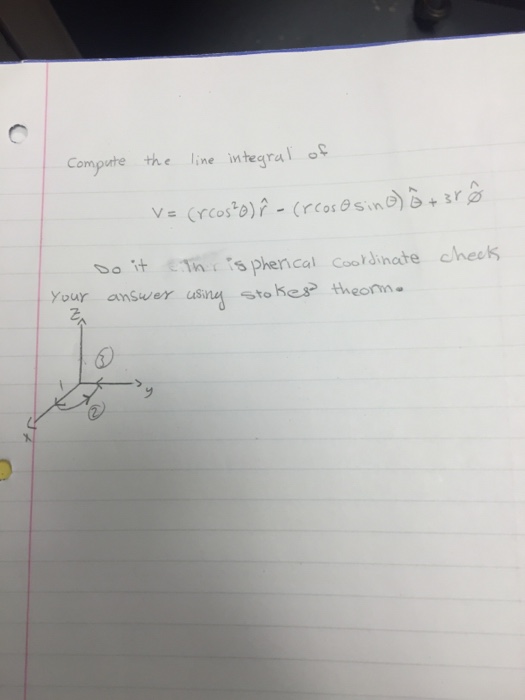 Compute the line integral of
V = (rcos²θ) r̂ - (rcosθsinθ) θ̂ + 3r φ̂
Do it In spherical Coordinate check
Your answer using stokes' theorm.
Z
③
1
y
②
x